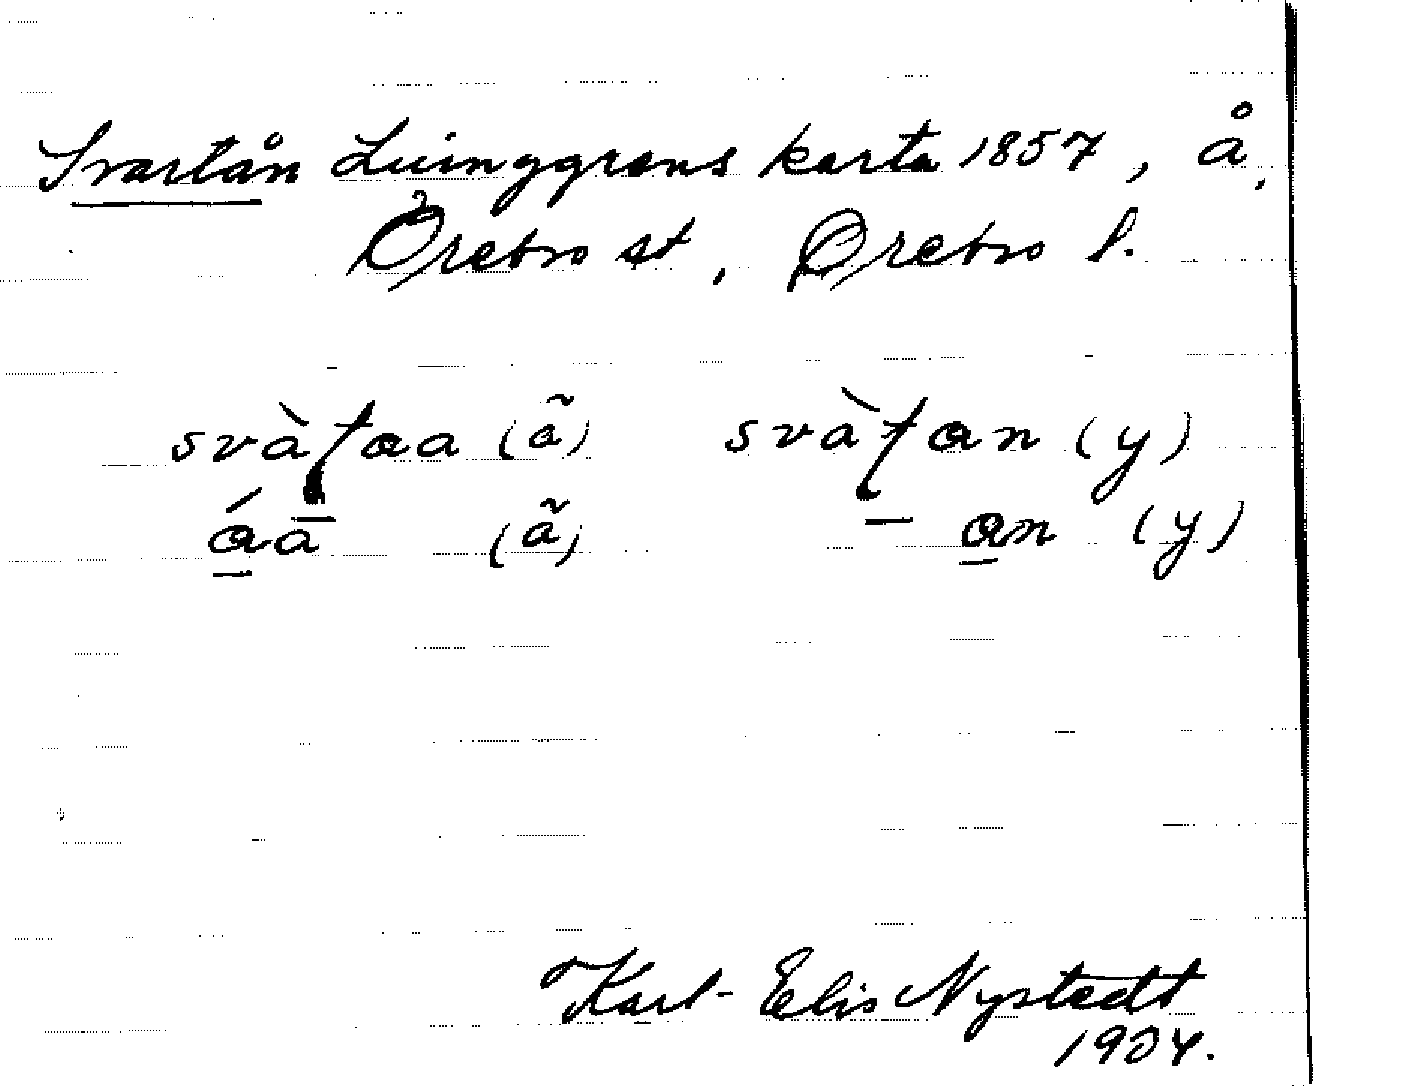 Svartån Ljunggrens karta 1857, å,
Örebro st, Örebro l.
svàtaa (ã) svàtan (y)
áa (ã) – an (y)
Karl-Elis Nystedt
1934.